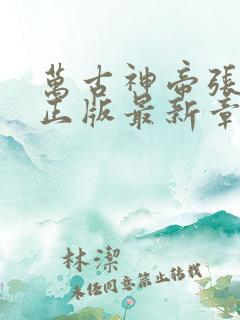 萬古神帝張
正版最新章
林潔
未经同意禁止转载